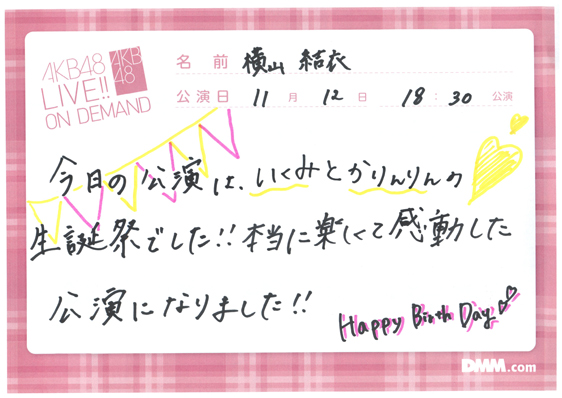 AKB48
LIVE!!
ON DEMAND
AKB
48
名前 横山 結衣
公演日 11月 12日 18:30 公演
今日の公演は、いくみとかりんりんの
生誕祭でした!!本当に楽しくて感動した
公演になりました!!
Happy Birth Day
DMM.com